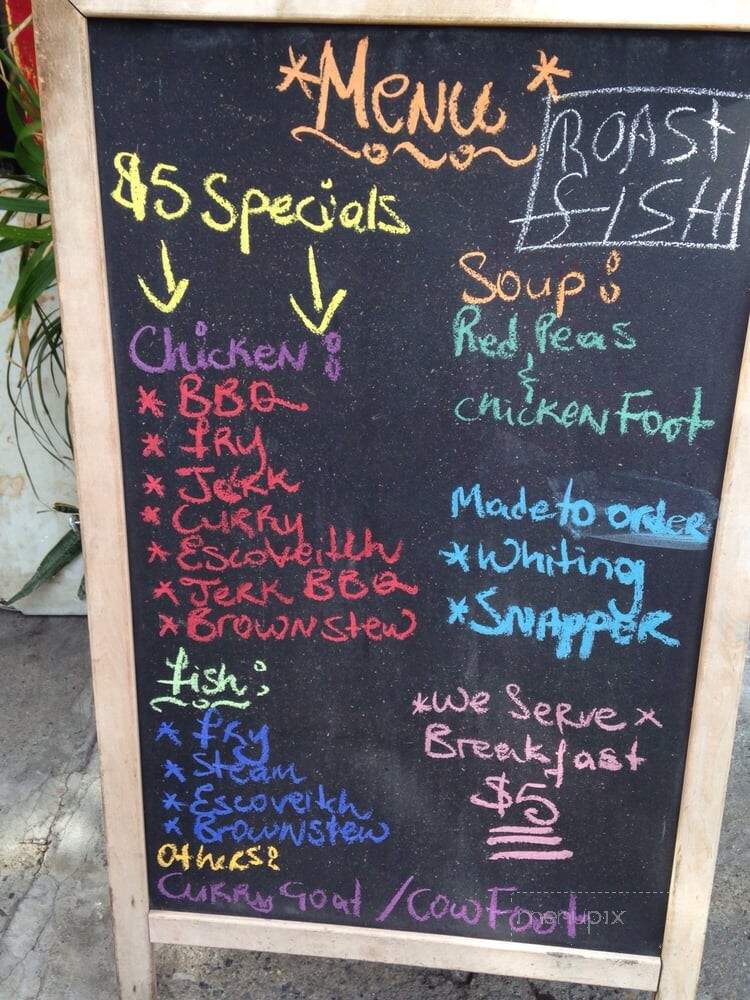 *Menu*
ROAST
FISH
$5 Specials
Chicken:
* BBQ
* fry
* Jerk
* Curry
* Escoveitch
* Jerk BBQ
* Brown stew
fish:
* fry
* Steam
* Escoveitch
* Brown stew
Others:
Curry Goat / Cow Foot
Soup:
Red Peas
&
chicken Foot
Made to order
* Whiting
* SNAPPER
* We Serve *
Breakfast
$5
menupix